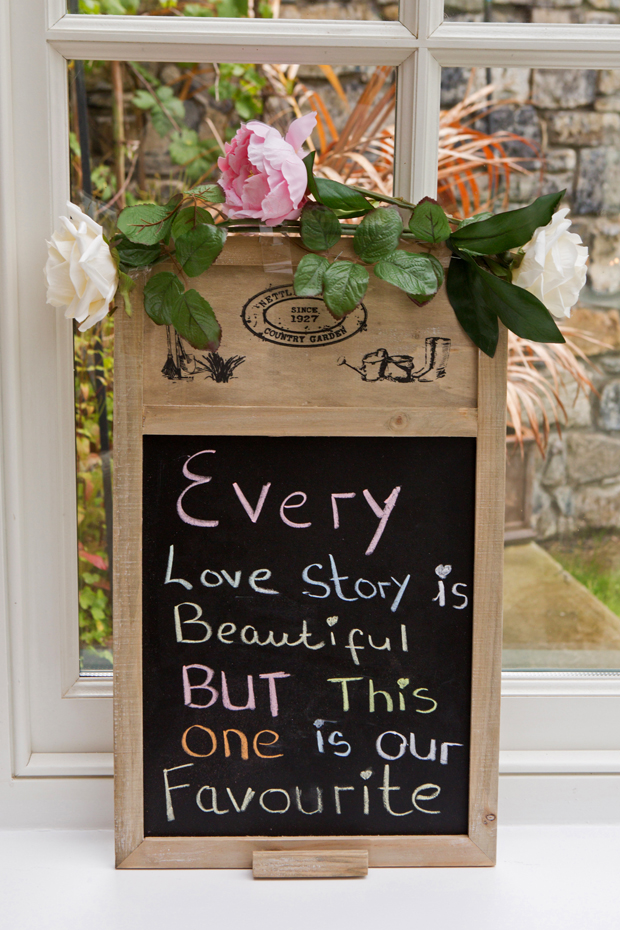 SINCE
1927
COUNTRY GARDEN
Every
Love Story is
Beautiful
BUT This
one is our
Favourite